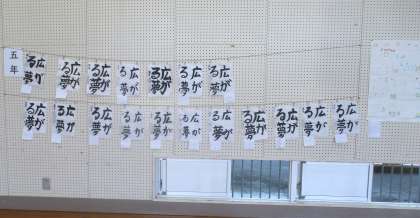 五年
広が
る夢
広が
る夢
広が
る夢
広が
る夢
広が
る夢
広が
る夢
広が
る夢
広が
る夢
広が
る夢
広が
る夢
広が
る夢
広が
る夢
広が
る夢
広が
る夢
広が
る夢
広が
る夢
広が
る夢
広が
る夢